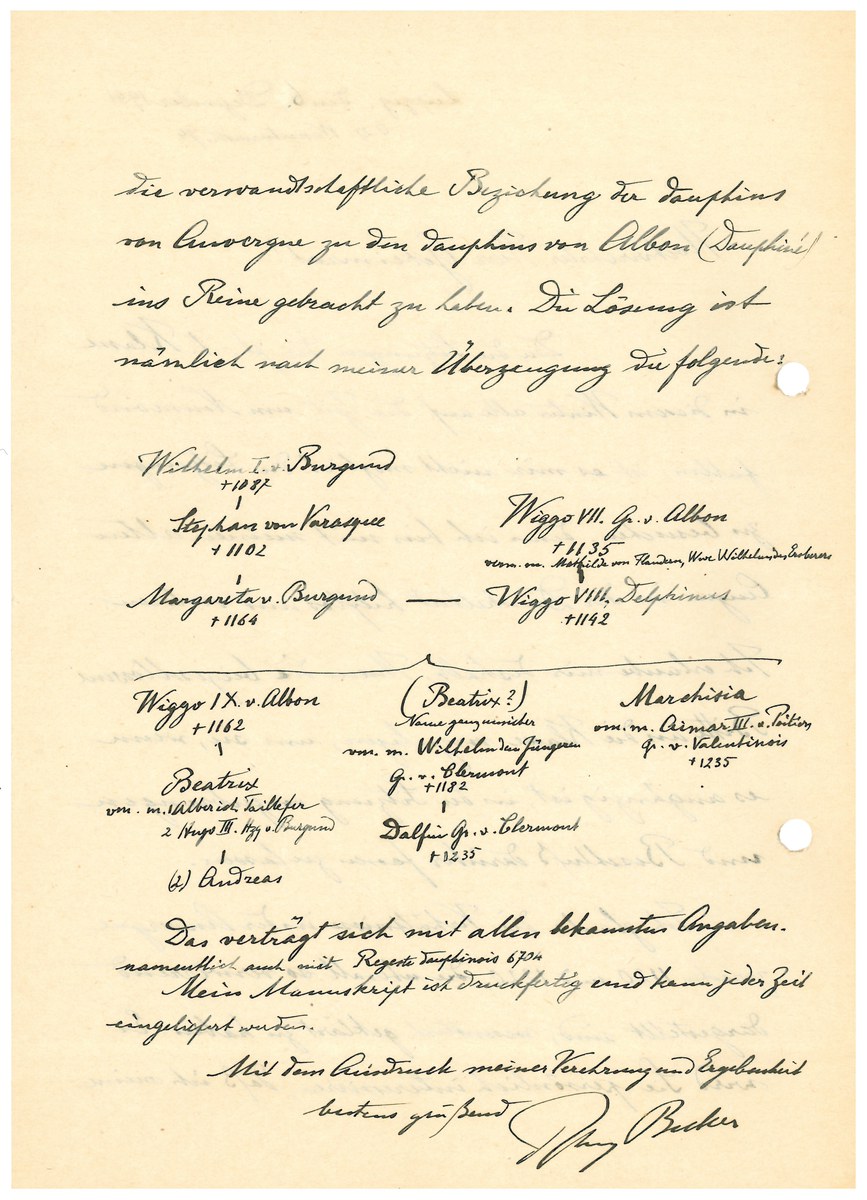 die verwandtschaftliche Beziehung der dauphins
von Auvergne zu den dauphins von Albon (Dauphiné)
ins Reine gebracht zu haben. Die Lösung ist
nämlich nach meiner Überzeugung die folgende:
Wilhelm I. v. Burgund
+1087
Stephan von Varasque
+1102
Margareta v. Burgund
+1164
Wiggo VII. Gr. v. Albon
+1135
verm. m. Mathilde von Flandern, Wwe Wilhelms des Eroberers
Wiggo VIII. Delphinus
+1142
Wiggo IX. v. Albon
+1162
Beatrix
vm. m. 1 Alberich Taillefer
2 Hugo III. Hzg v. Burgund
(2) Andreas
(Beatrix?)
Name ganz unsicher
vm. m. Wilhelm dem Jüngeren
Gr. v. Clermont
+1182
Dalfin Gr. v. Clermont
+1235
Marchisia
vm. m. Aimar III. v. Poitiers
Gr. v. Valentinois
+1235
Das verträgt sich mit allen bekannten Angaben.
namentlich auch mit Regeste dauphinois 6704
Mein Manuskript ist druckfertig und kann jeder Zeit
eingeliefert werden.
Mit dem Ausdruck meiner Verehrung und Ergebenheit
bestens grüßend